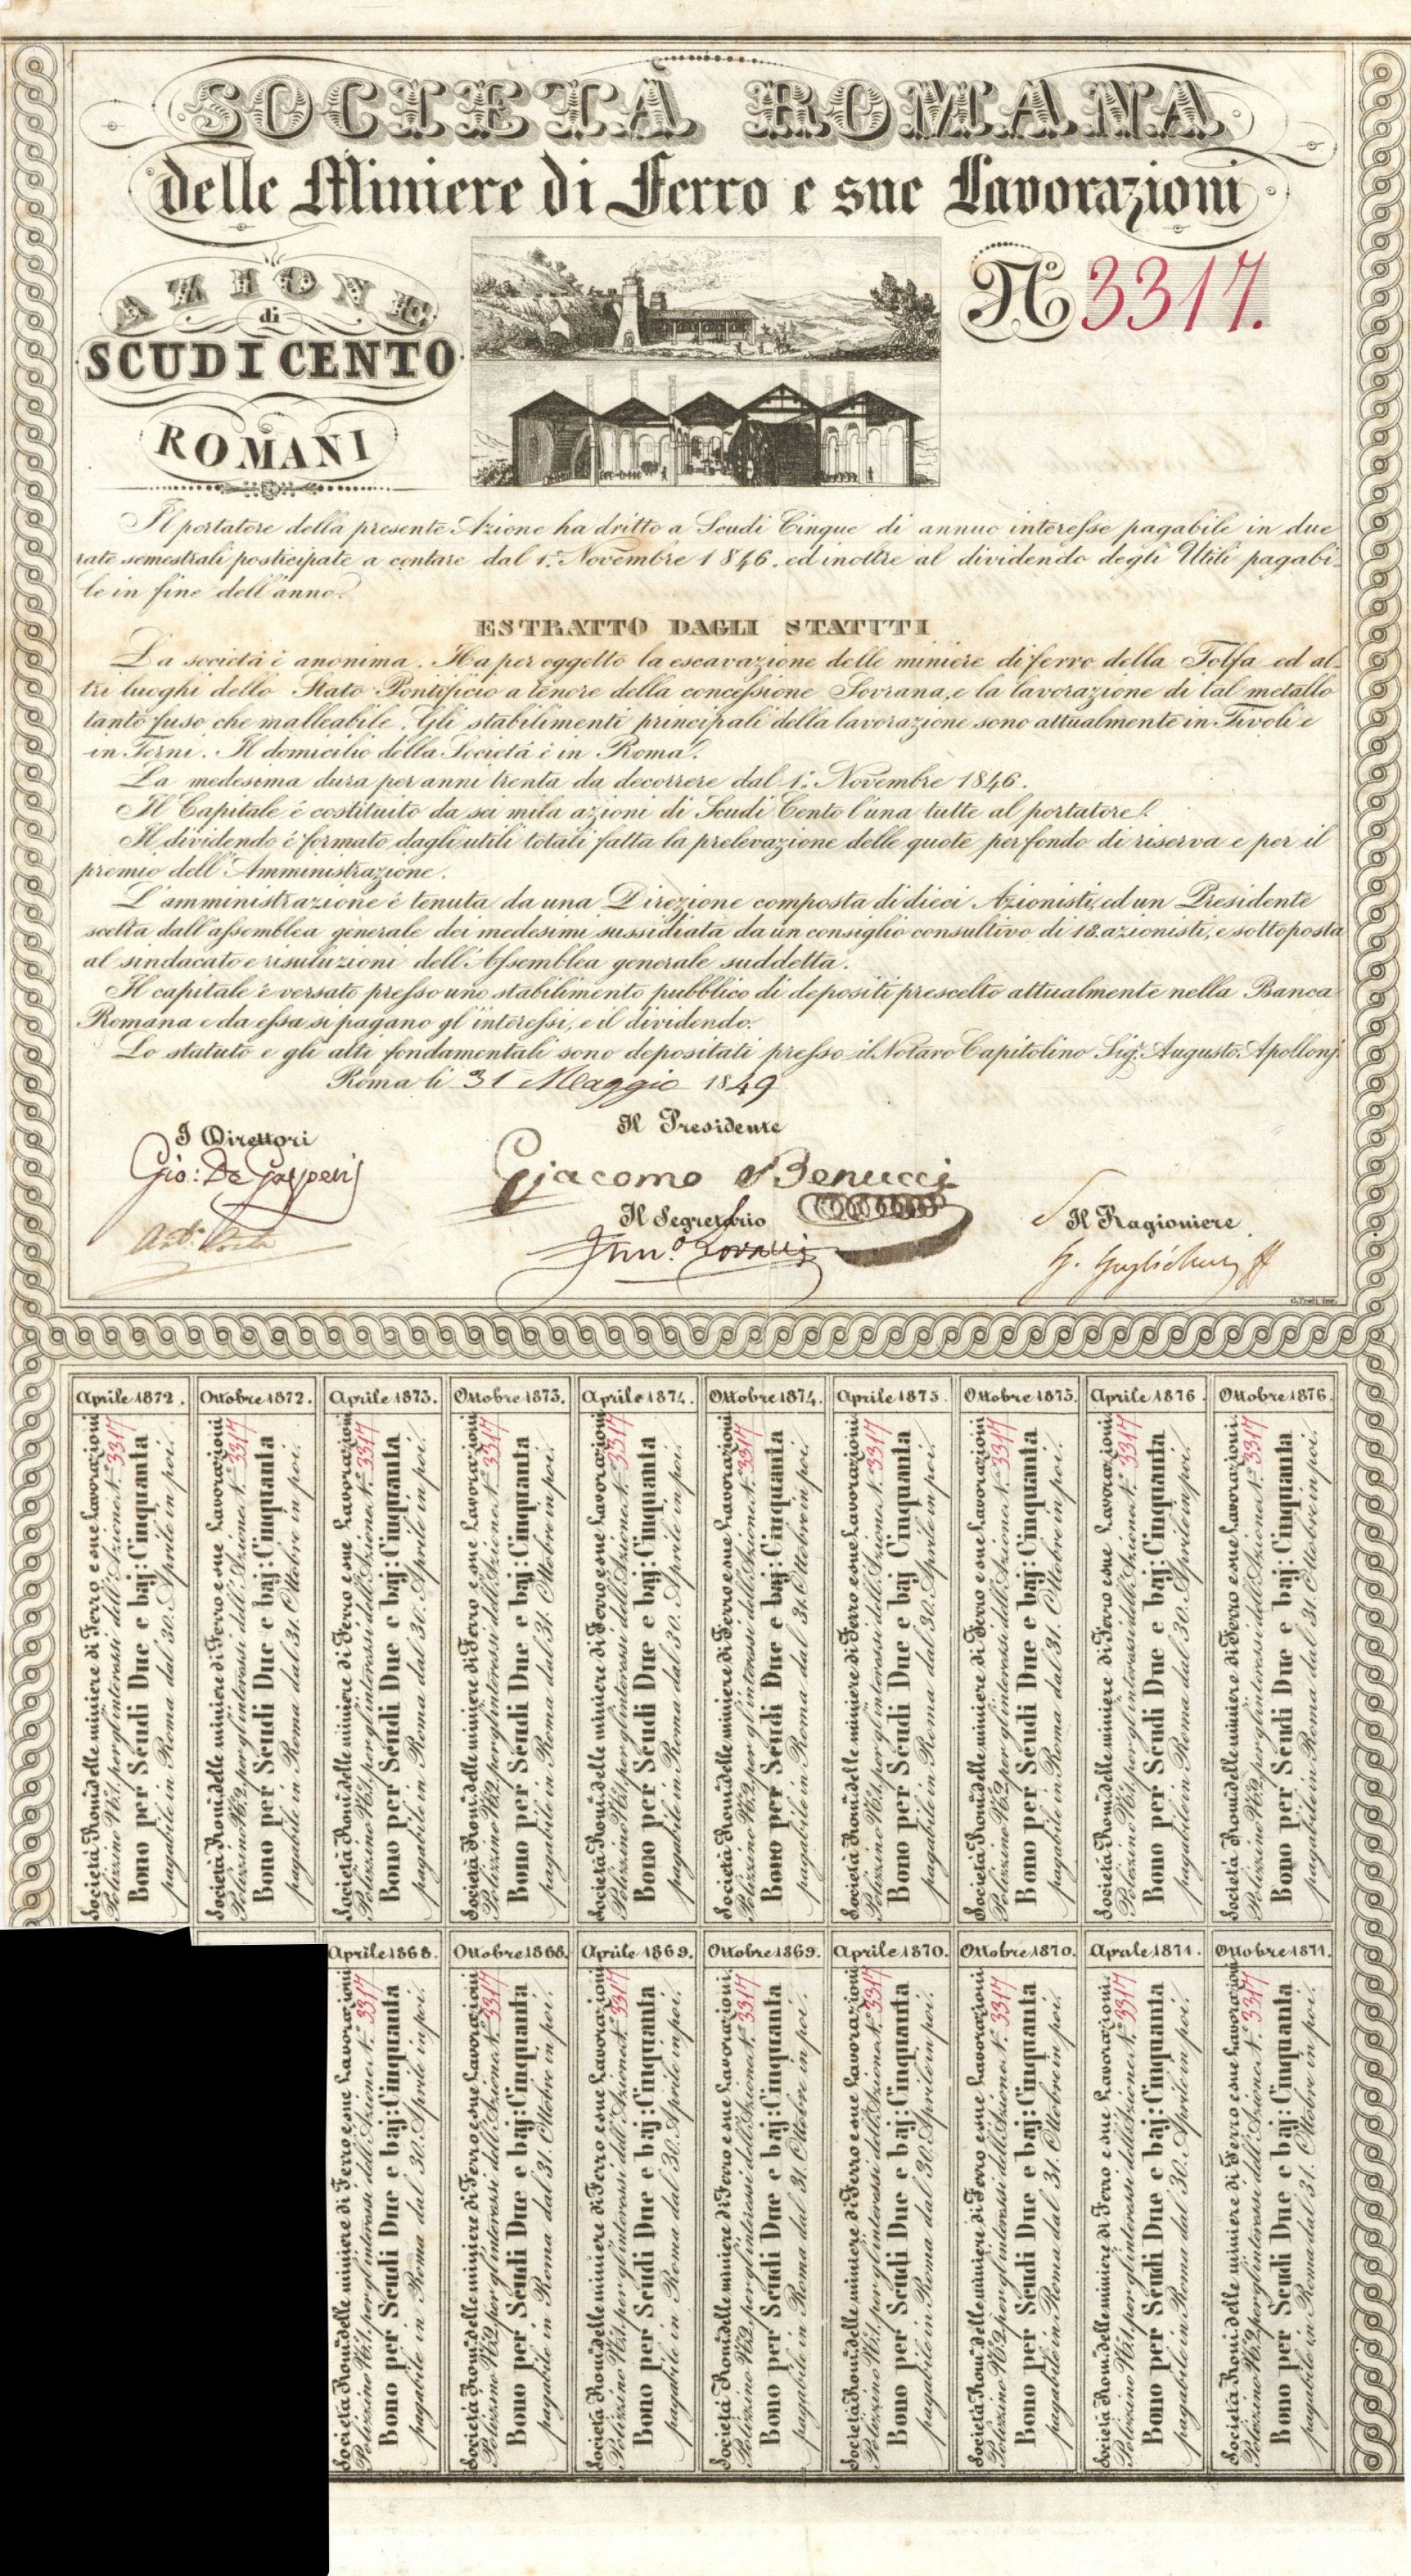 SOCIETÀ ROMANA
delle Miniere di Ferro e sue Lavorazioni
AZIONE
di
SCUDI CENTO
ROMANI
N.º 3317.
Il portatore della presente Azione ha dritto a Scudi Cinque di annuo interesse pagabile in due
rate semestrali posticipate a contare dal 1.º Novembre 1846. ed inoltre al dividendo degli Utili pagabi-
le in fine dell'anno.
ESTRATTO DAGLI STATUTI
La società è anonima. Ha per oggetto la escavazione delle miniere di ferro della Tolfa ed al-
tri luoghi dello Stato Pontificio a tenore della concessione Sovrana, e la lavorazione di tal metallo
tanto fuso che malleabile. Gli stabilimenti principali della lavorazione sono attualmente in Tivoli e
in Terni. Il domicilio della Società è in Roma.
La medesima dura per anni trenta da decorrere dal 1.º Novembre 1846.
Il Capitale è costituito da sei mila azioni di Scudi Cento l'una tutte al portatore.
Il dividendo è formato dagli utili totali fatta la prelevazione delle quote per fondo di riserva e per il
premio dell'Amministrazione.
L'amministrazione è tenuta da una Direzione composta di dieci Azionisti, ed un Presidente
scelta dall'assemblea generale dei medesimi sussidiata da un consiglio consultivo di 18. azionisti, e sottoposta
al sindacato e risoluzioni dell'Assemblea generale suddetta.
Il capitale è versato presso uno stabilimento pubblico di depositi prescelto attualmente nella Banca
Romana e da essa si pagano gl'interessi, e il dividendo.
Lo statuto e gli atti fondamentali sono depositati presso il Notaro Capitolino Sig.r Augusto Apollonj.
Roma li 31 Maggio 1849
I Direttori
Il Presidente
Gio: De Gasperis
Giacomo Benucci
Il Segretario
Il Ragioniere
Aprile 1872. Ottobre 1872. Aprile 1873. Ottobre 1873. Aprile 1874. Ottobre 1874. Aprile 1875 Ottobre 1875. Aprile 1876. Ottobre 1876.
Società Rom. delle miniere di Ferro e sue Lavorazioni
Polizzino N.º 1. per gl'interessi dell'Azione N.º 3317
Bono per Scudi Due e baj: Cinquanta
pagabile in Roma dal 30. Aprile in poi.
Società Rom. delle miniere di Ferro e sue Lavorazioni
Polizzino N.º 2. per gl'interessi dell'Azione N.º 3317
Bono per Scudi Due e baj: Cinquanta
pagabile in Roma dal 31. Ottobre in poi.
Società Rom. delle miniere di Ferro e sue Lavorazioni
Polizzino N.º 1. per gl'interessi dell'Azione N.º 3317
Bono per Scudi Due e baj: Cinquanta
pagabile in Roma dal 30. Aprile in poi.
Società Rom. delle miniere di Ferro e sue Lavorazioni
Polizzino N.º 2. per gl'interessi dell'Azione N.º 3317
Bono per Scudi Due e baj: Cinquanta
pagabile in Roma dal 31. Ottobre in poi.
Società Rom. delle miniere di Ferro e sue Lavorazioni
Polizzino N.º 1. per gl'interessi dell'Azione N.º 3317
Bono per Scudi Due e baj: Cinquanta
pagabile in Roma dal 30. Aprile in poi.
Società Rom. delle miniere di Ferro e sue Lavorazioni
Polizzino N.º 2. per gl'interessi dell'Azione N.º 3317
Bono per Scudi Due e baj: Cinquanta
pagabile in Roma dal 31. Ottobre in poi.
Società Rom. delle miniere di Ferro e sue Lavorazioni
Polizzino N.º 1. per gl'interessi dell'Azione N.º 3317
Bono per Scudi Due e baj Cinquanta
pagabile in Roma dal 30. Aprile in poi.
Società Rom. delle miniere di Ferro e sue Lavorazioni
Polizzino N.º 2. per gl'interessi dell'Azione N.º 3317
Bono per Scudi Due e baj: Cinquanta
pagabile in Roma dal 31. Ottobre in poi.
Società Rom. delle miniere di Ferro e sue Lavorazioni
Polizzino N.º 1. per gl'interessi dell'Azione N.º 3317
Bono per Scudi Due e baj: Cinquanta
pagabile in Roma dal 30. Aprile in poi.
Società Rom. delle miniere di Ferro e sue Lavorazioni
Polizzino N.º 2. per gl'interessi dell'Azione N.º 3317
Bono per Scudi Due e baj: Cinquanta
pagabile in Roma dal 31. Ottobre in poi.
Aprile 1868. Ottobre 1868. Aprile 1869. Ottobre 1869. Aprile 1870. Ottobre 1870. Aprile 1871. Ottobre 1871.
Società Rom. delle miniere di Ferro e sue Lavorazioni
Polizzino N.º 1. per gl'interessi dell'Azione N.º 3317
Bono per Scudi Due e baj: Cinquanta
pagabile in Roma dal 30. Aprile in poi.
Società Rom. delle miniere di Ferro e sue Lavorazioni
Polizzino N.º 2. per gl'interessi dell'Azione N.º 3317
Bono per Scudi Due e baj: Cinquanta
pagabile in Roma dal 31. Ottobre in poi.
Società Rom. delle miniere di Ferro e sue Lavorazioni
Polizzino N.º 1. per gl'interessi dell'Azione N.º 3317
Bono per Scudi Due e baj: Cinquanta
pagabile in Roma dal 30. Aprile in poi.
Società Rom. delle miniere di Ferro e sue Lavorazioni
Polizzino N.º 2. per gl'interessi dell'Azione N.º 3317
Bono per Scudi Due e baj: Cinquanta
pagabile in Roma dal 31. Ottobre in poi.
Società Rom. delle miniere di Ferro e sue Lavorazioni
Polizzino N.º 1. per gl'interessi dell'Azione N.º 3317
Bono per Scudi Due e baj: Cinquanta
pagabile in Roma dal 30. Aprile in poi.
Società Rom. delle miniere di Ferro e sue Lavorazioni
Polizzino N.º 2. per gl'interessi dell'Azione N.º 3317
Bono per Scudi Due e baj: Cinquanta
pagabile in Roma dal 31. Ottobre in poi.
Società Rom. delle miniere di Ferro e sue Lavorazioni
Polizzino N.º 1. per gl'interessi dell'Azione N.º 3317
Bono per Scudi Due e baj: Cinquanta
pagabile in Roma dal 30. Aprile in poi.
Società Rom. delle miniere di Ferro e sue Lavorazioni
Polizzino N.º 2. per gl'interessi dell'Azione N.º 3317
Bono per Scudi Due e baj: Cinquanta
pagabile in Roma dal 31. Ottobre in poi.